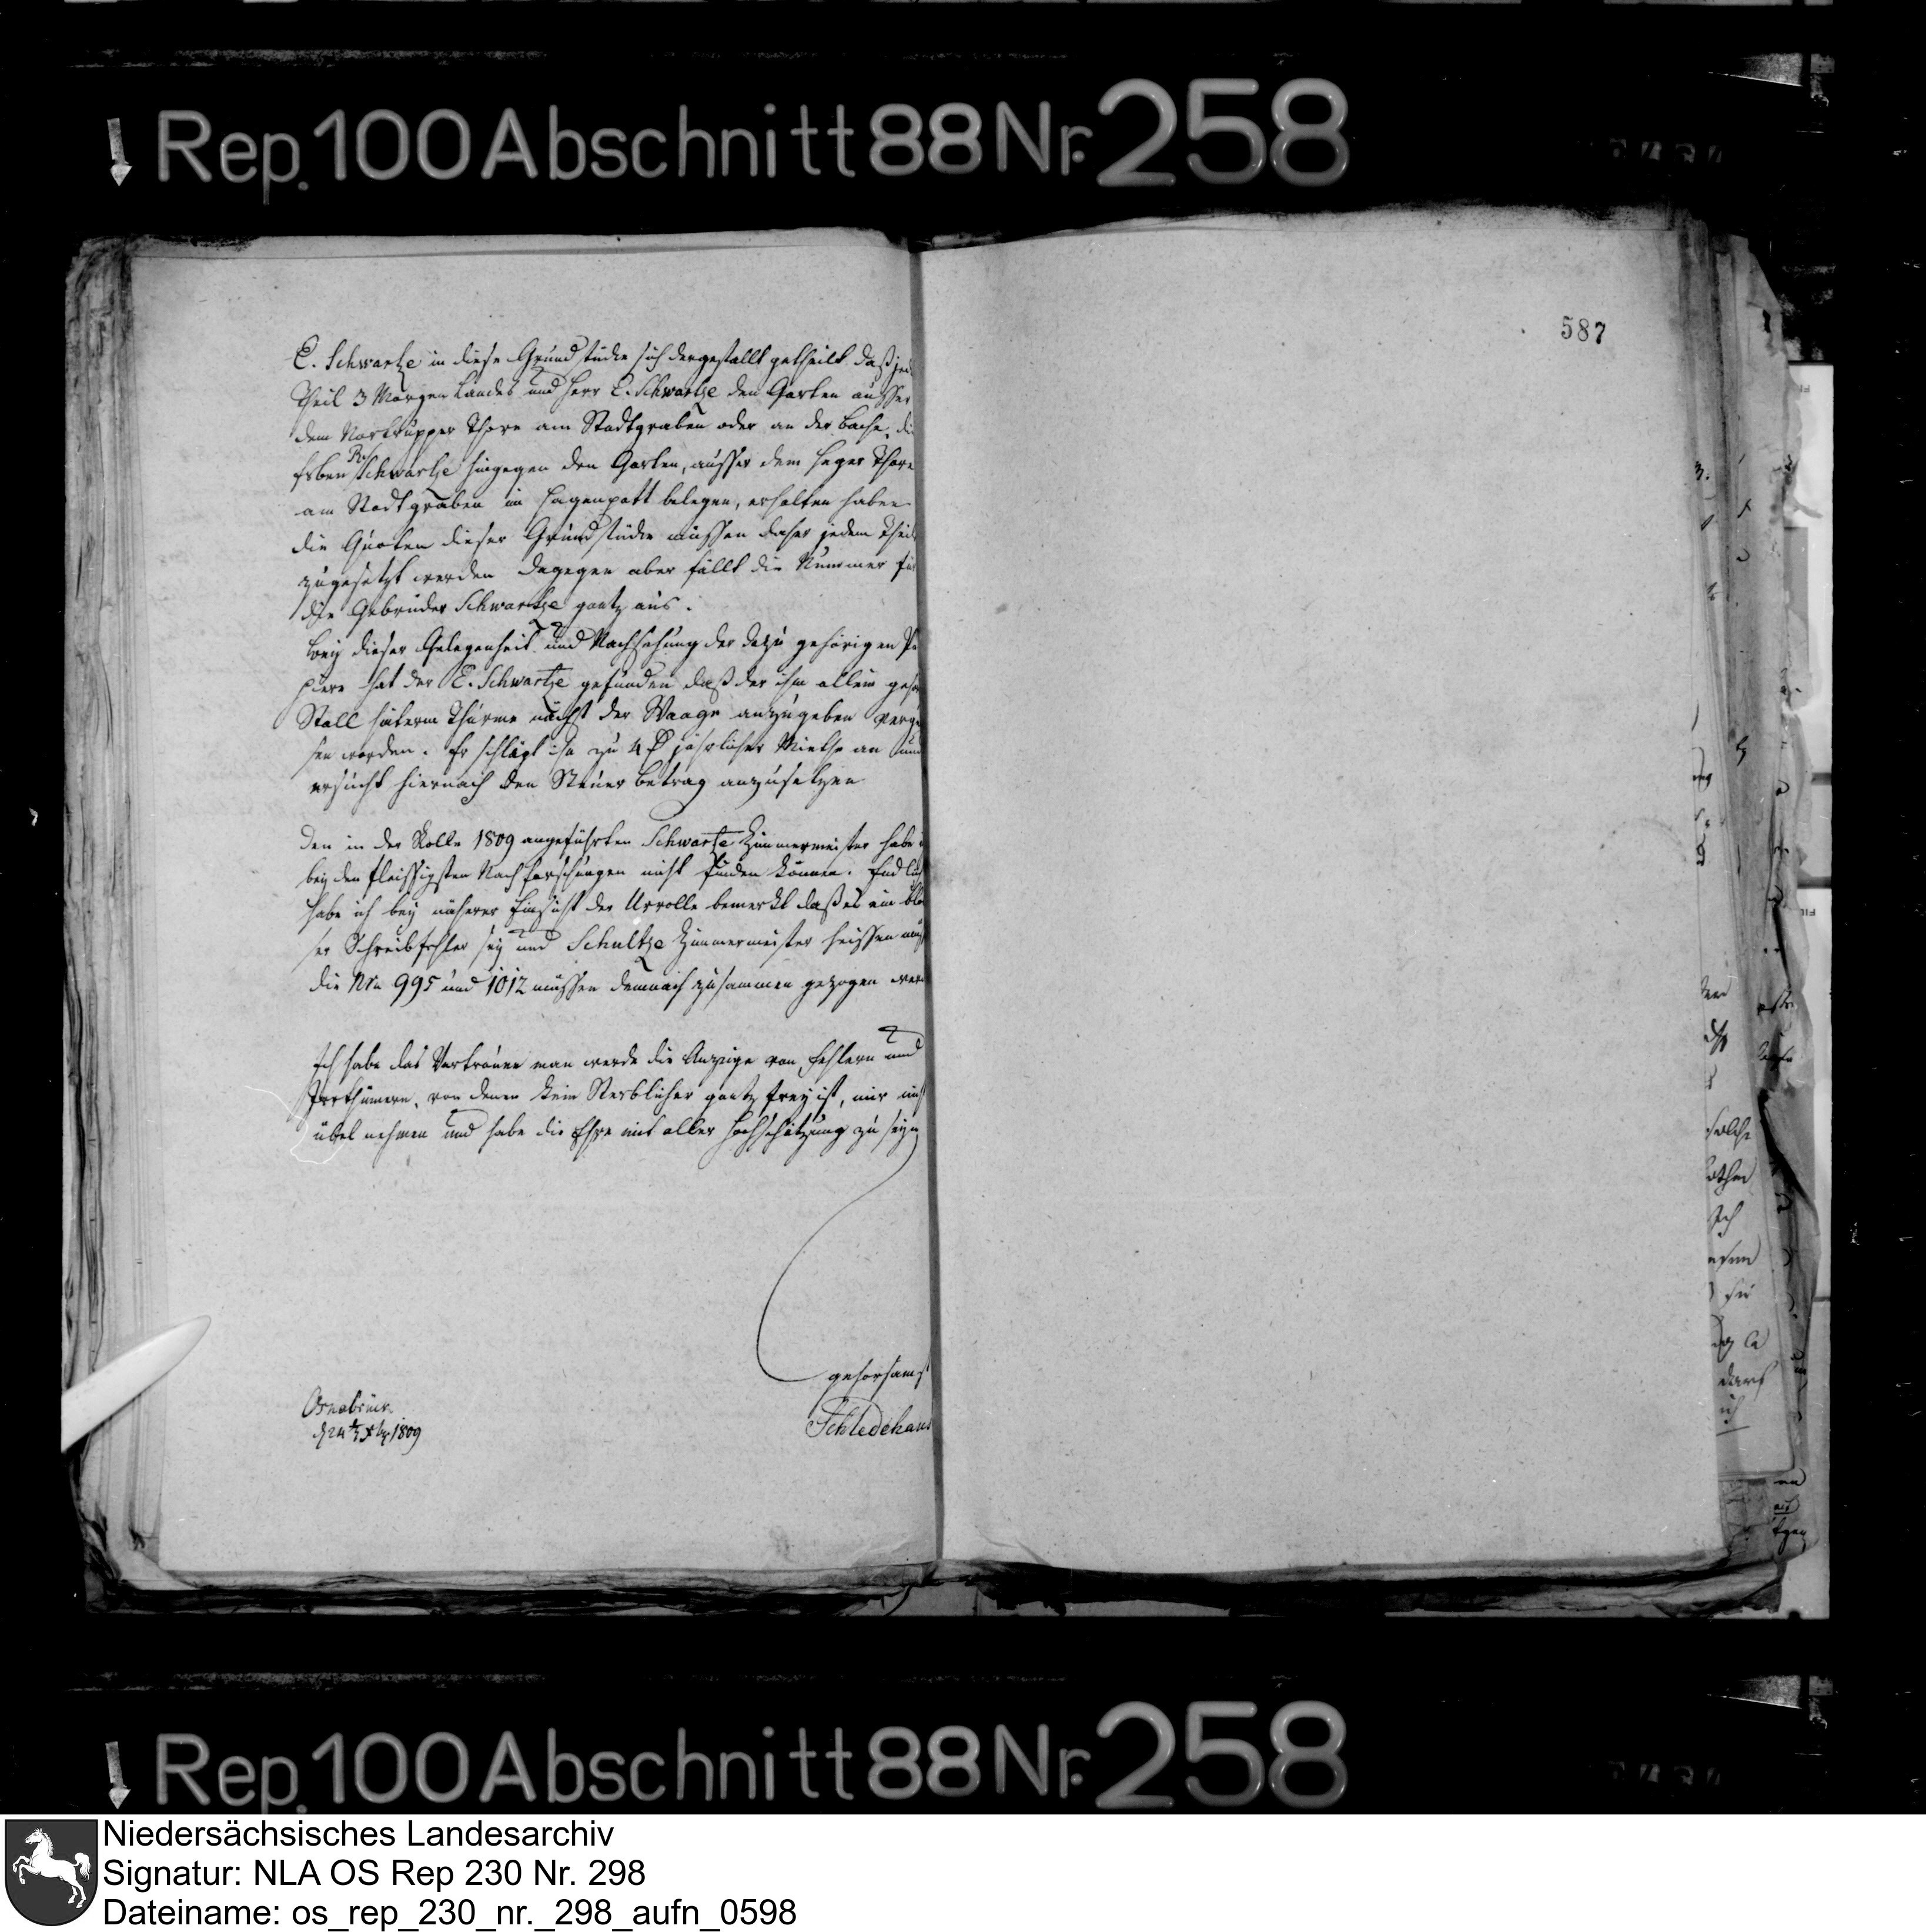 Rep. 100 Abschnitt 88 Nr. 258
587
E. Schwartze in diese Grundstücke sich dergestallt getheilt daß
Theil 3 Morgen Landes und Herr E. Schwartze den Garten ausser
dem Nortrupper Thore am Stadtgraben oder an der Bache, die
Erben Schwartze hingegen den Garten, ausser dem Heger Thore
am Stadtgraben in Hagenpatt belegen, erhalten haben
die Quoten dieser Grundstücke müssen daher jedem Theil
zugesetzt werden dagegen aber fällt die Nummer für
die Gebrüder Schwartze gantz aus.
bey dieser Gelegenheit und Nachsehung der dazu gehörigen Pa
piere hat der E. Schwartze gefunden daß der ihm allein
Stall hinterm Thurme nächst der Waage anzugeben verge
sen worden. Er schlägt ihn zu 4 jährlicher Miethe an und
ersucht hiernach den Steuer betrag anzusetzen
Den in der Rolle 1809 angeführten Schwartze Zimmermeister habe
bey den fleissigsten Nachforschungen nicht finden können. Endlich
habe ich bey näherer Einsicht der Urrolle bemerkt daß es ein blo
ser Schreibfehler sey und Schultze Zimmermeister heissen
die Nrn 995 und 1012 müssen demnach zusammen gezogen
Ich habe das Vertrauen man werde die Anzeige von Fehlern und
Irrthümern, von denen kein Sterblicher gantz frey ist, mir nicht
übel nehmen und habe die Ehre mit aller Hochschätzung zu seyn
gehorsamst
Osnabrück
1809
Schledehaus
Rep. 100 Abschnitt 88 Nr. 258
Niedersächsisches Landesarchiv
Signatur: NLA OS Rep 230 Nr. 298
Dateiname: os_rep_230_nr._298_aufn_0598